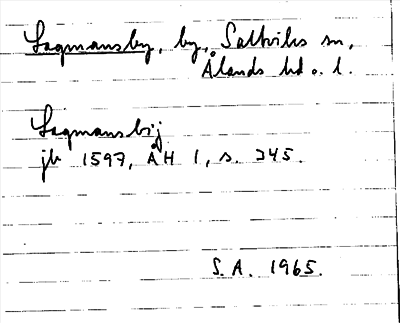 Lagmansby, by, Saltviks sn,
Ålands hd o. l.
Lagmansbij
jb 1597, ÅH 1, s. 245.
S.A. 1965.